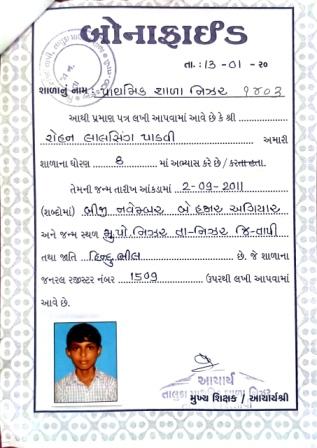 બોનાફાઈડ
તા. : 13 - 01 - ૨૦
શાળાનું નામ : પ્રાથમિક શાળા નિઝર ૧૪૦૩
આથી પ્રમાણ પત્ર લખી આપવામાં આવે છે કે શ્રી
રોહન લાલસિંગ પાડવી અમારી
શાળાના ધોરણ 8 માં અભ્યાસ કરે છે / કરતા હતા.
તેમની જન્મ તારીખ આંકડામાં 2-09-2011
(શબ્દોમાં) બીજી નવેમ્બર બે હજાર અગિયાર
અને જન્મ સ્થળ મુ.પો. નિઝર તા-નિઝર જિ-તાપી
તથા જાતિ હિન્દુ ભીલ છે. જે શાળાના
જનરલ રજીસ્ટર નંબર 1509 ઉપરથી લખી આપવામાં
આવે છે.
આચાર્ય
તાલુકા શાળા નિઝર
મુખ્ય શિક્ષક / આચાર્યશ્રી